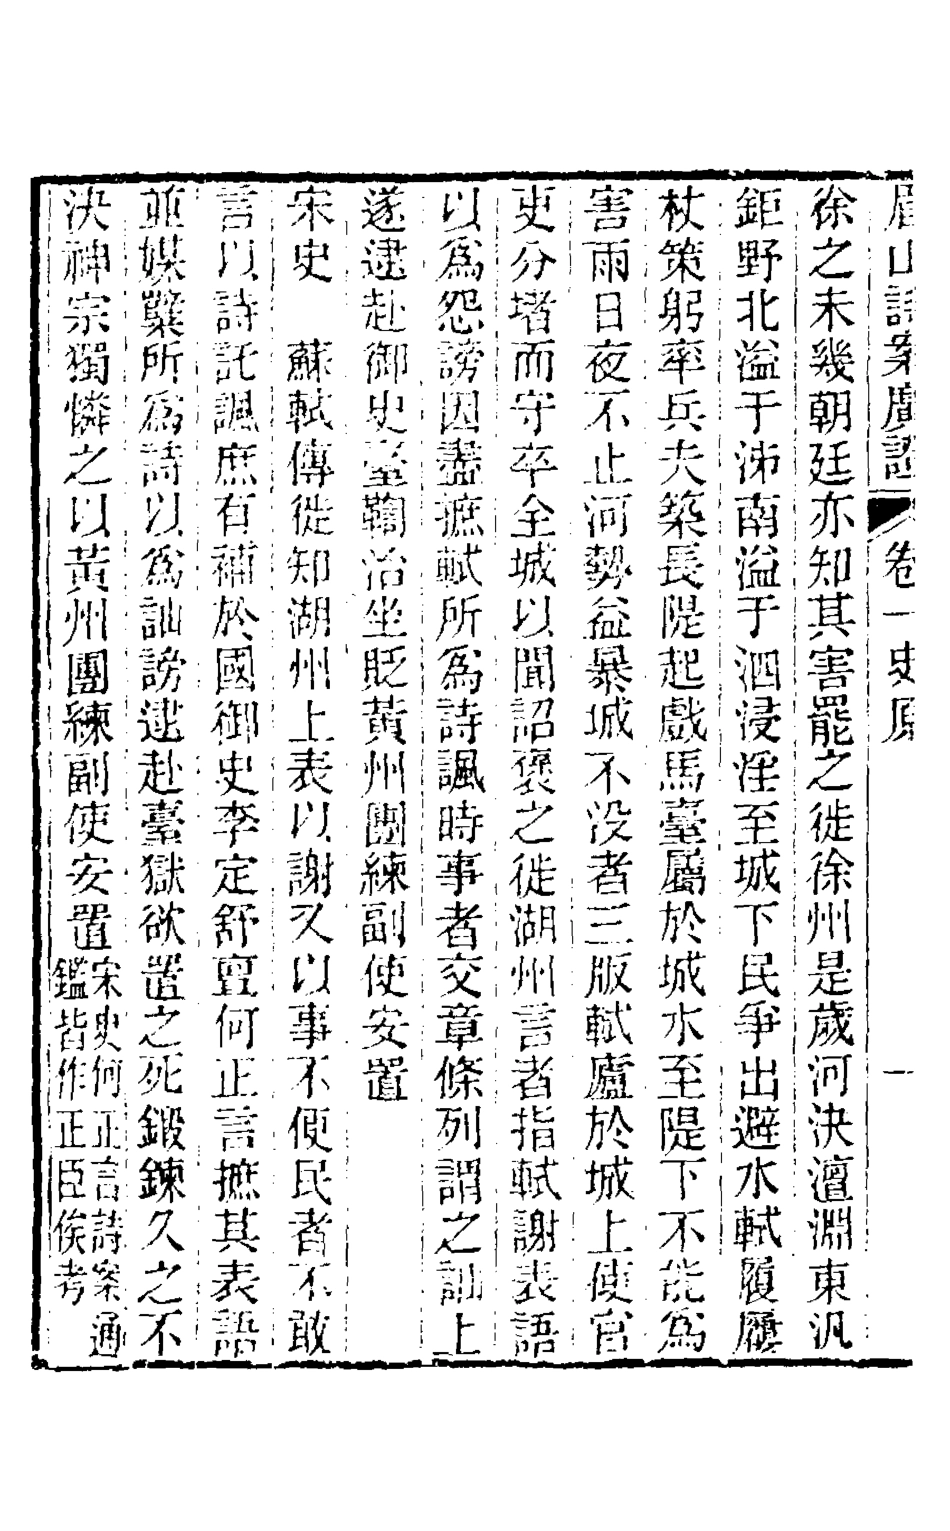 眉山詩案廣證 卷一 史原 一
徐之未幾朝廷亦知其害罷之徙徐州是歲河決澶淵東汎
鉅野北溢于泲南溢于泗浸淫至城下民爭出避水軾履屨
杖策躬率兵夫築長隄起戲馬臺屬於城水至隄下不能爲
害雨日夜不止河勢益暴城不没者三版軾廬於城上使官
吏分堵而守卒全城以聞詔褒之徙湖州言者指軾謝表語
以爲怨謗因盡摭軾所爲詩諷時事者交章條列謂之訕上
遂逮赴御史臺鞫治坐貶黃州團練副使安置
宋史　蘇軾傳徙知湖州上表以謝又以事不便民者不敢
言以詩託諷庶有補於國御史李定舒亶何正言摭其表語
並媒糵所爲詩以爲訕謗逮赴臺獄欲置之死鍛鍊久之不
決神宗獨憐之以黃州團練副使安置宋史何正言詩案通
鑑皆作正臣俟考